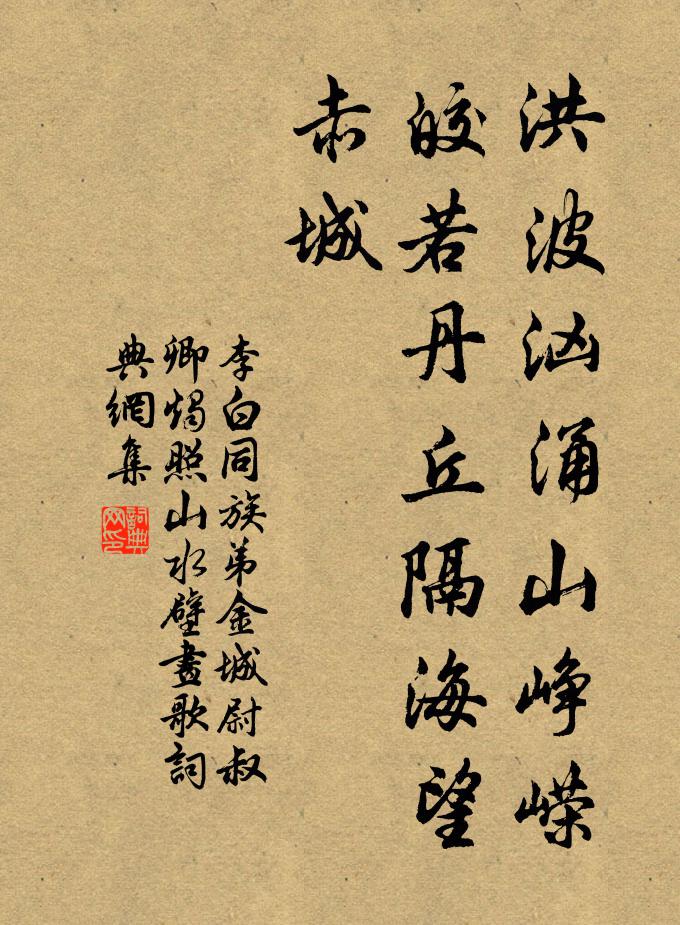 洪波汹涌山峥嵘
皎若丹丘隔海望
赤城
李白同族弟金城尉叔
卿烛照山水壁畫歌詞
典網集
詞典
网印